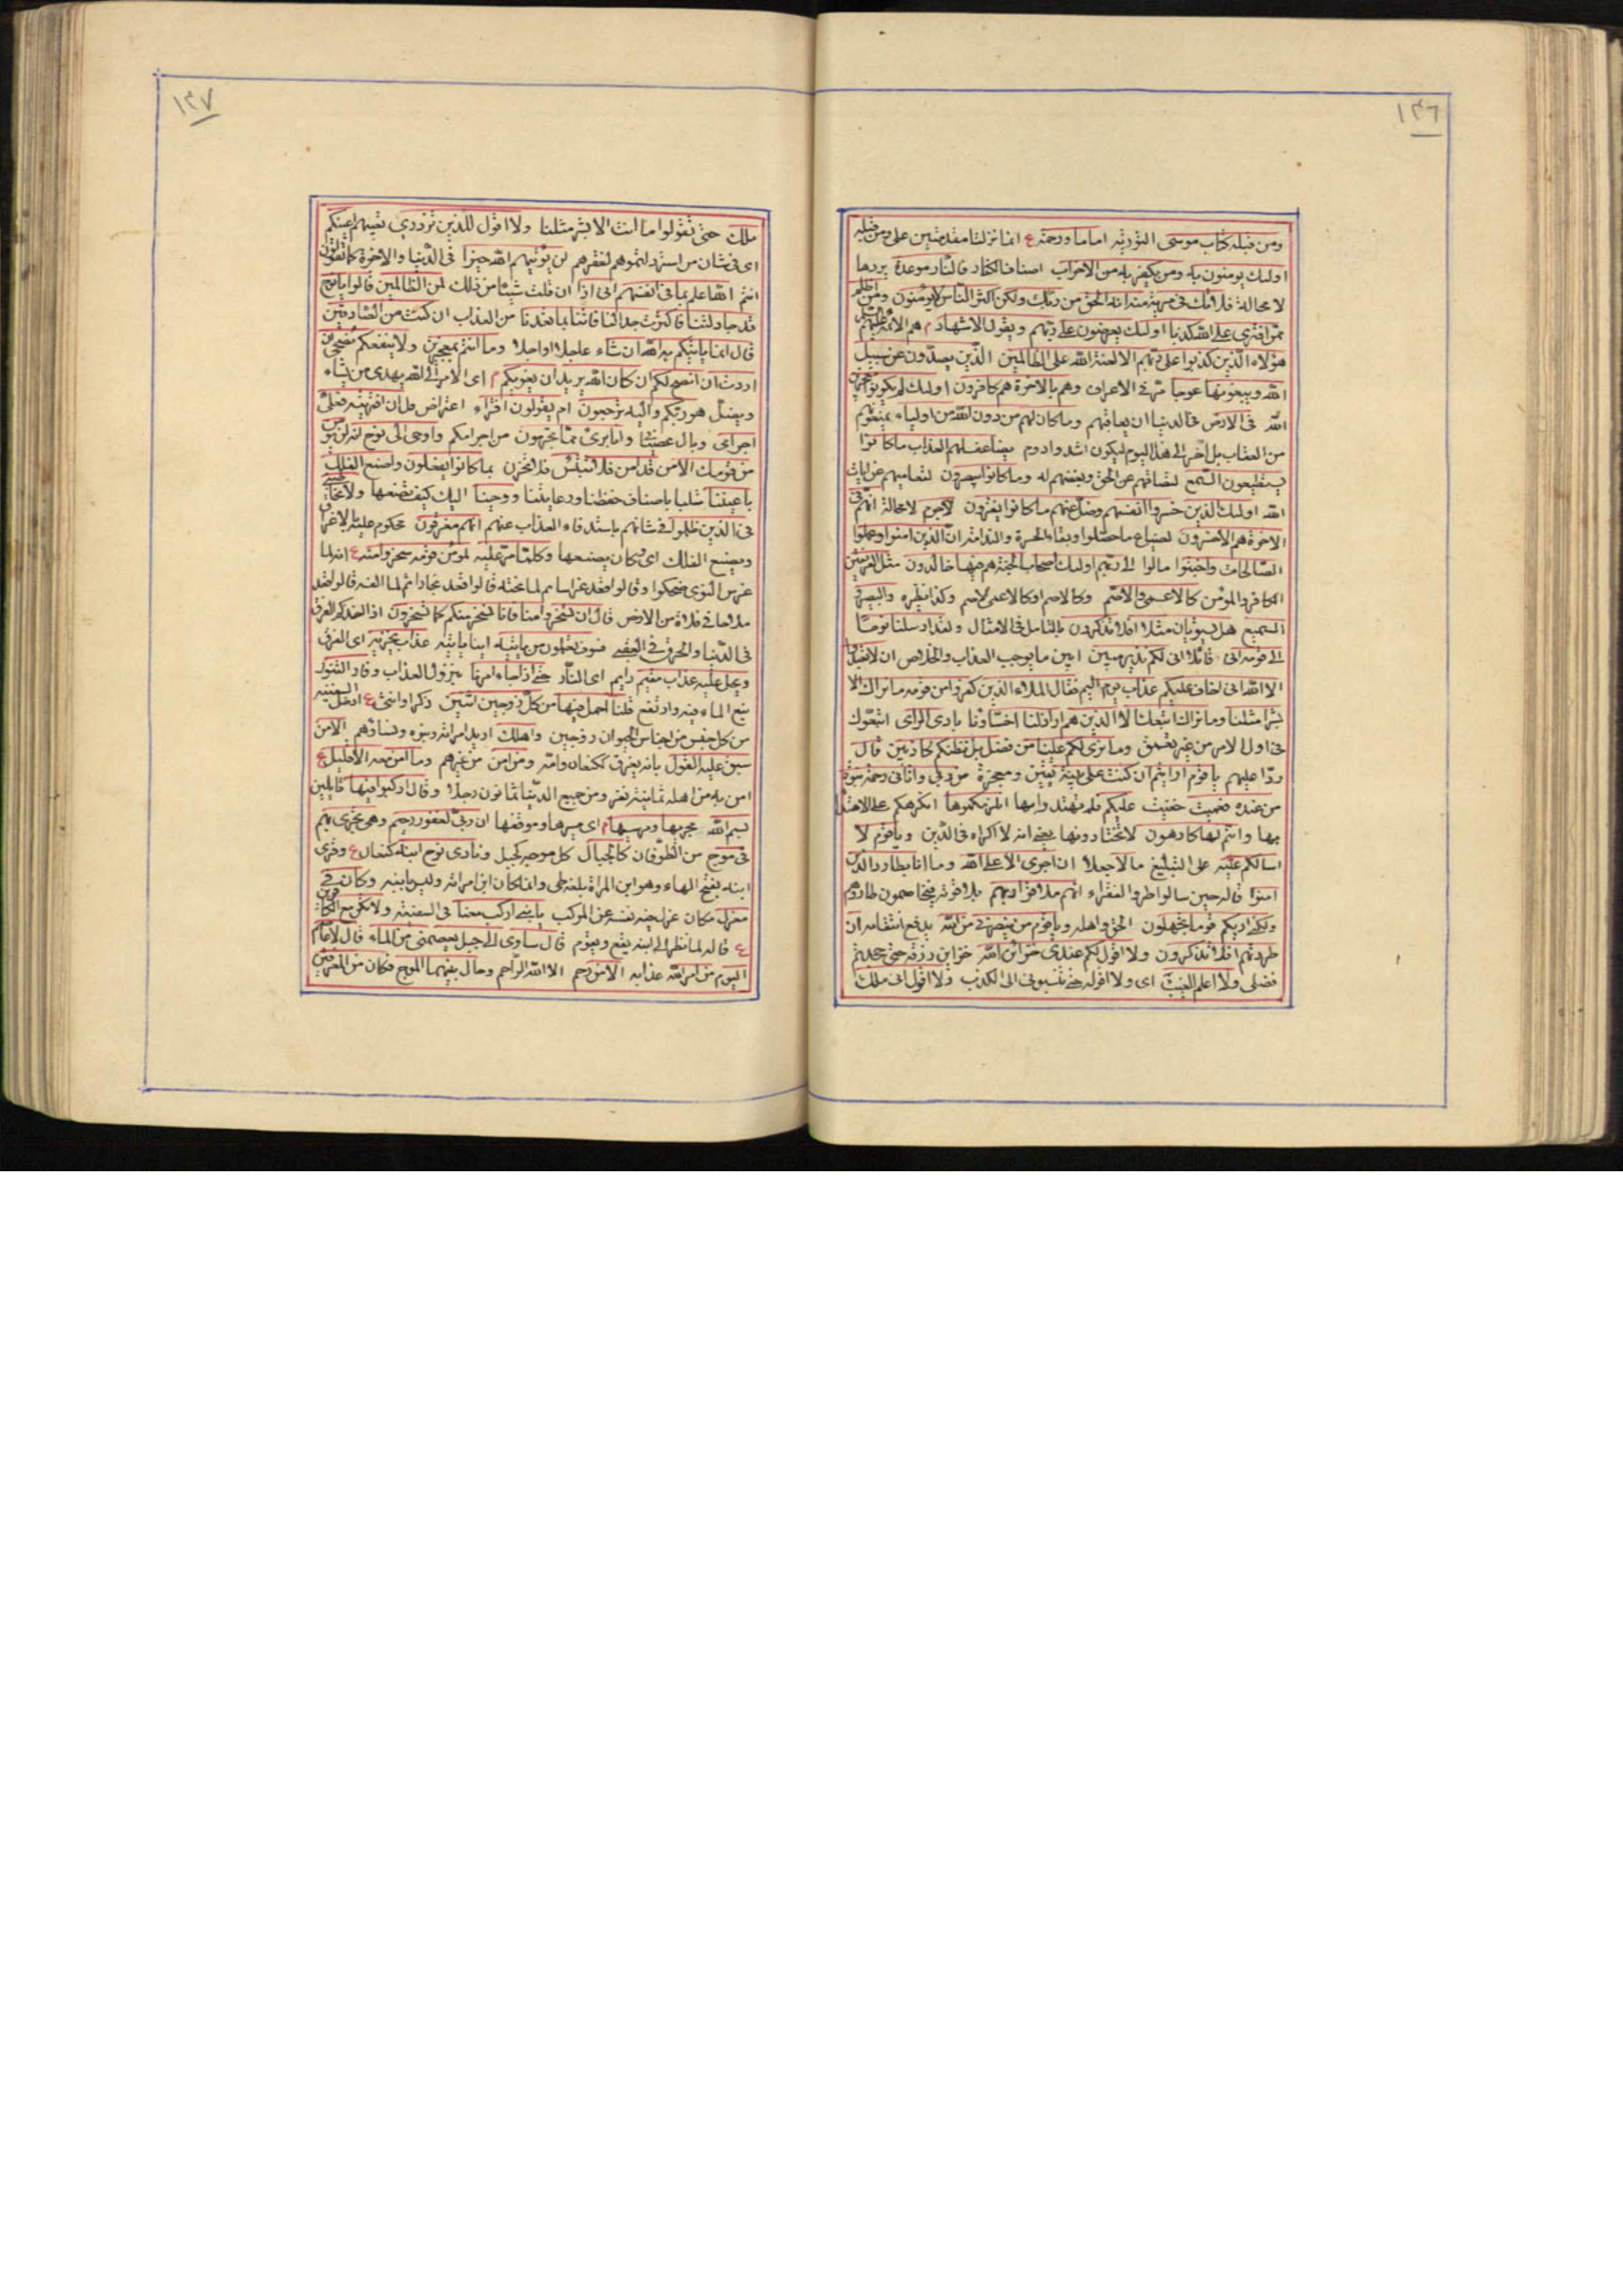 ١٣٦
ومن قبله كتاب موسى التورية اماما ورحمة ع انما نزلنا مقدمتين على ومن قبله
اولئك يومنون به ومن يكفر به من الاحزاب اصناف الكفار فالنار موعده يردها
لا محالة فلا تك في مرية منه انه الحق من ربك ولكن اكثر الناس لا يومنون ومن اظلم
ممن افترى على الله كذبا اولئك يعرضون على ربهم ويقول الاشهاد م هم الائمة
هؤلاء الذين كذبوا على ربهم الا لعنة الله على الظالمين الذين يصدون عن سبيل
الله ويبغونها عوجا في الاعراف وهم بالاخرة هم كافرون اولئك لم يكونوا معجزين
الله في الارض في الدنيا ان يعاقبهم وما كان لهم من دون الله من اولياء يمنعوهم
من العقاب بل اخر الى هذا اليوم ليكون اشد وادوم يضاعف لهم العذاب ما كانوا
يستطيعون السمع لتصامهم عن الحق وبغضهم له وما كانوا يبصرون لتعاميهم عن ايات
الله اولئك الذين خسروا انفسهم وضل عنهم ما كانوا يفترون لا جرم لا محالة انهم في
الاخرة هم الاخسرون لضياع ما حصلوا وبقاء الحسرة والندامة ان الذين امنوا وعملوا
الصالحات واخبتوا مالوا الى ربهم اولئك اصحاب الجنة هم فيها خالدون مثل الفريقين
الكافر والمومن كالاعمى والاصم وكالاصم او كالاعمى الاصم وكذا نظيره والبصير و
السميع هل يستويان مثلا افلا تذكرون بالتامل في الامثال ولقد ارسلنا نوحا
الى قومه انى قائلا انى لكم نذير مبين ابين ما يوجب العذاب والخلاص ان لا تعبدوا
الا الله انى اخاف عليكم عذاب يوم اليم فقال الملاء الذين كفروا من قومه ما نراك الا
بشرا مثلنا وما نراك اتبعك الا الذين هم اراذلنا اخساؤنا بادى الراى اتبعوك
في اول الامر من غير تعمق وما نرى لكم علينا من فضل بل نظنكم كاذبين قال
ردا عليهم يا قوم ارايتم ان كنت على بينة يقين ومعجزة من ربى واتانى رحمة نبوة
من عنده فعميت خفيت عليكم فلم تهتدوا بها انلزمكموها انكرهكم على الاهتداء
بها وانتم لها كارهون لا تختارونها يعنى انه لا اكراه في الدين ويا قوم لا
اسالكم عليه على التبليغ مالا جعلا ان اجرى الا على الله وما انا بطارد الذين
امنوا قاله حين سالوا طرد الفقراء انهم ملاقوا ربهم يلاقونه فيخاصمون طاردهم
ولكنى اريكم قوما تجهلون الحق واهله ويا قوم من ينصرنى من الله بدفع انتقامه ان
طردتهم افلا تذكرون ولا اقول لكم عندى خزائن الله خزاين رزقه حتى جحدتم
فضلى ولا اعلم الغيب اى ولا اقوله حتى تنسبونى الى الكذب ولا اقول انى ملك
١٣٧
ملك حتى تقولوا ما انت الا بشر مثلنا ولا اقول للذين تزدرى تعيبهم اعينكم
اى في شان من استرذلتموهم لفقرهم لن يؤتيهم الله خيرا في الدنيا والاخرة كما تقولون
انتم الله اعلم بما في انفسهم انى اذا ان قلت شيئا من ذلك لمن الظالمين قالوا يا نوح
قد جادلتنا فاكثرت جدالنا فاتنا بما تعدنا من العذاب ان كنت من الصادقين
قال انما ياتيكم به الله ان شاء عاجلا او اجلا وما انتم بمعجزين ولا ينفعكم نصحى ان
اردت ان انصح لكم ان كان الله يريد ان يغويكم م اى الامر الى الله يهدى من يشاء
ويضل هو ربكم واليه ترجعون ام يقولون افتراه اعتراض قل ان افتريته فعلى
اجرامى وبال وانا برئ مما تجرمون من اجرامكم واوحى الى نوح انه لن يومن
من قومك الا من قد امن فلا تبتئس فلا تحزن بما كانوا يفعلون واصنع الفلك
باعيننا متلبسا باصناف حفظنا ورعايتنا ووحينا اليك كيف تصنعها ولا تخاطبنى
في الذين ظلموا في شانهم باستدفاء العذاب عنهم انهم مغرقون محكوم عليهم بالاغراق
ويصنع الفلك اى وكان يصنعها وكلما مر عليه ملؤ من قومه سخروا منه ع انه لما
غرس النوى ضحكوا وقالوا قعد غراسا ثم لما نحته قالوا قعد نجارا ثم لما الفه قالوا قعد
ملاحا في فلاة من الارض قال ان تسخروا منا فانا نسخر منكم كما تسخرون اذا اخذكم الغرق
في الدنيا والحرق في العقبى فسوف تعلمون من ياتيه اينا ياتيه عذاب يخزيه اى الغرق
ويحل عليه عذاب مقيم دايم اى النار حتى اذا جاء امرنا بنزول العذاب وفار التنور
نبع الماء فيه وارتفع قلنا احمل فيها من كل زوجين اثنين ذكرا وانثى ع ادخل السفينة
من كل جنس من اجناس الحيوان زوجين واهلك اريد امراته وبنوه ونساؤهم الا من
سبق عليه القول بانه يغرق ككنعان وامه ومن امن من غيرهم وما امن معه الا قليل ع
امن به من اهله ثمانية نفر ومن جميع الدنيا ثمانون رجلا وقال اركبوا فيها قايلين
بسم الله مجريها ومرسيها م اى مسيرها وموقفها ان ربى لغفور رحيم وهى تجرى بهم
في موج من الطوفان كالجبال كل موجه كجبل ونادى نوح ابنه كنعان ع وقرى
ابنه بفتح الهاء وهو ابن المراة بلغة طى وانما كان ابن امراته وليس بابنه وكان في
معزل مكان عزل فيه نفسه عن المركب يا بنى اركب معنا في السفينة ولا تكن مع الكافرين
ع قاله لما نظر الى ابنه يقع ويقوم قال ساوى الى جبل يعصمنى من الماء قال لا عاصم
اليوم من امر الله عذابه الا من رحم الا الله الراحم وحال بينهما الموج فكان من المغرقين